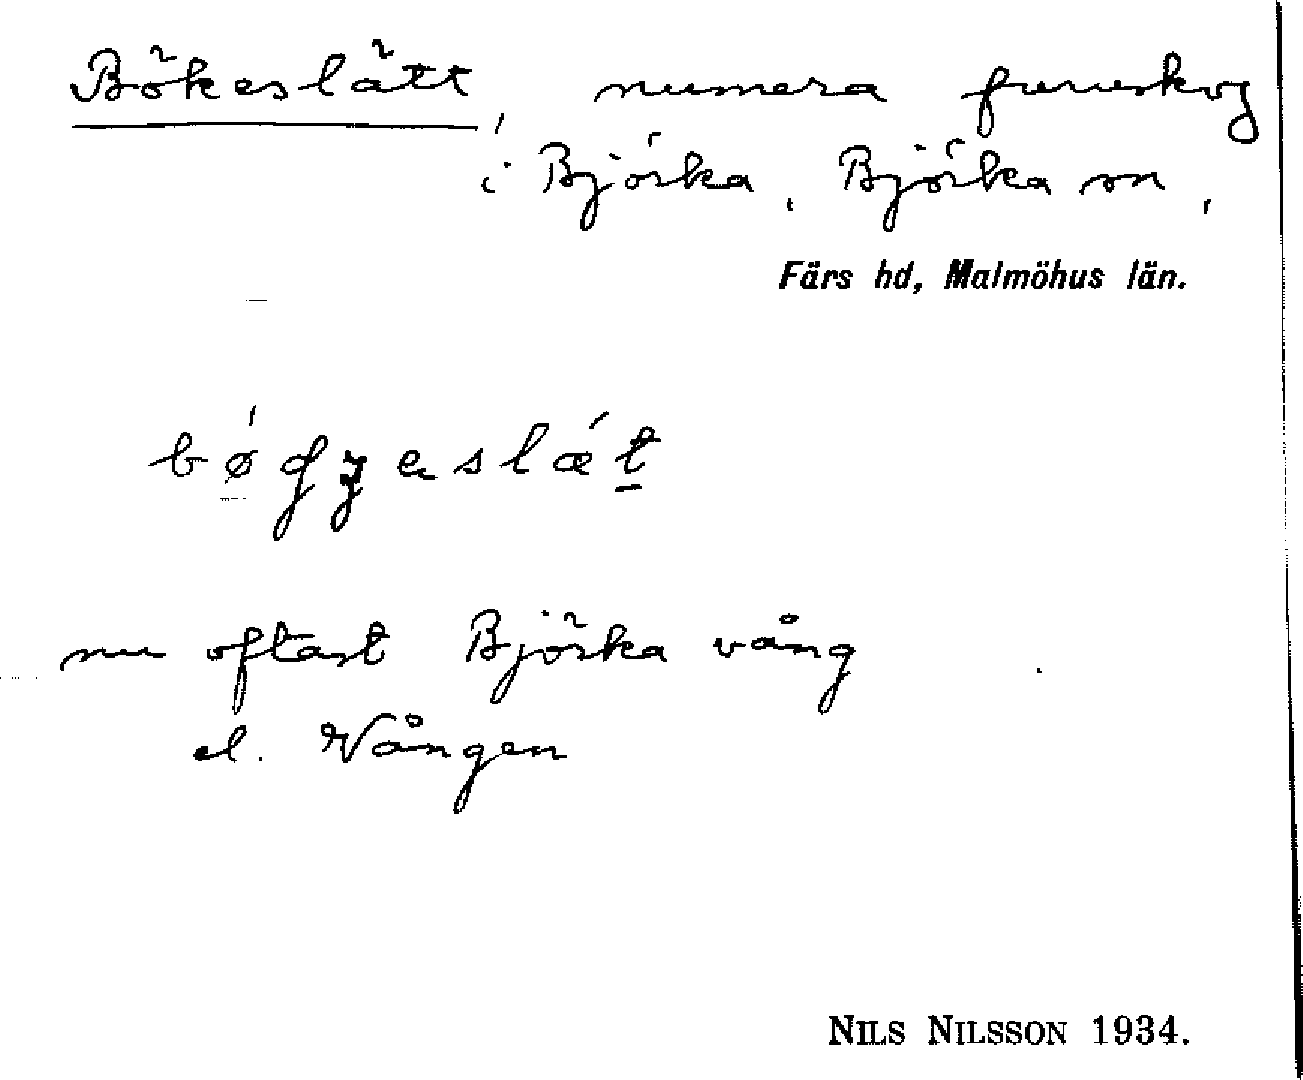 Bökeslätt, numera furuskog
i Björka, Björka sn,
Färs hd, Malmöhus län.
bøgjeslæt
nu oftast Björka vång
el. Vången
NILS NILSSON 1934.